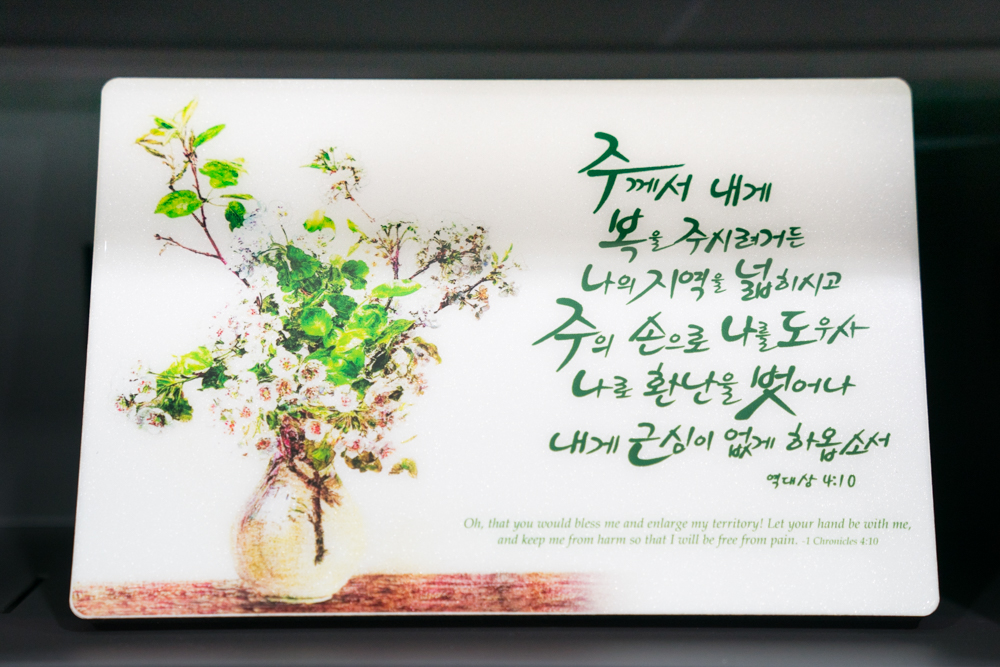 주께서 내게
복을 주시려거든
나의 지역을 넓히시고
주의 손으로 나를 도우사
나로 환난을 벗어나
내게 근심이 없게 하옵소서
역대상 4:10
Oh, that you would bless me and enlarge my territory! Let your hand be with me,
and keep me from harm so that I will be free from pain. -1 Chronicles 4:10